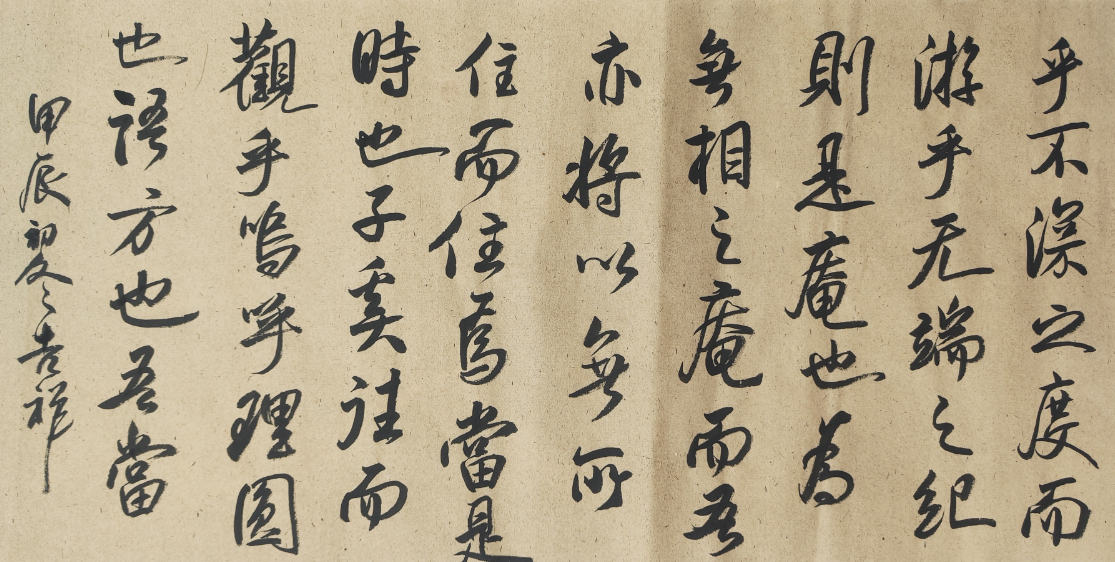 乎不深之度而
游乎无端之紀
則是庵也為
無相之庵而吾
亦將以無所
住而住焉當是
時也子奚往而
觀乎嗚呼理圓
也語方也吾當
甲辰初冬吉祥